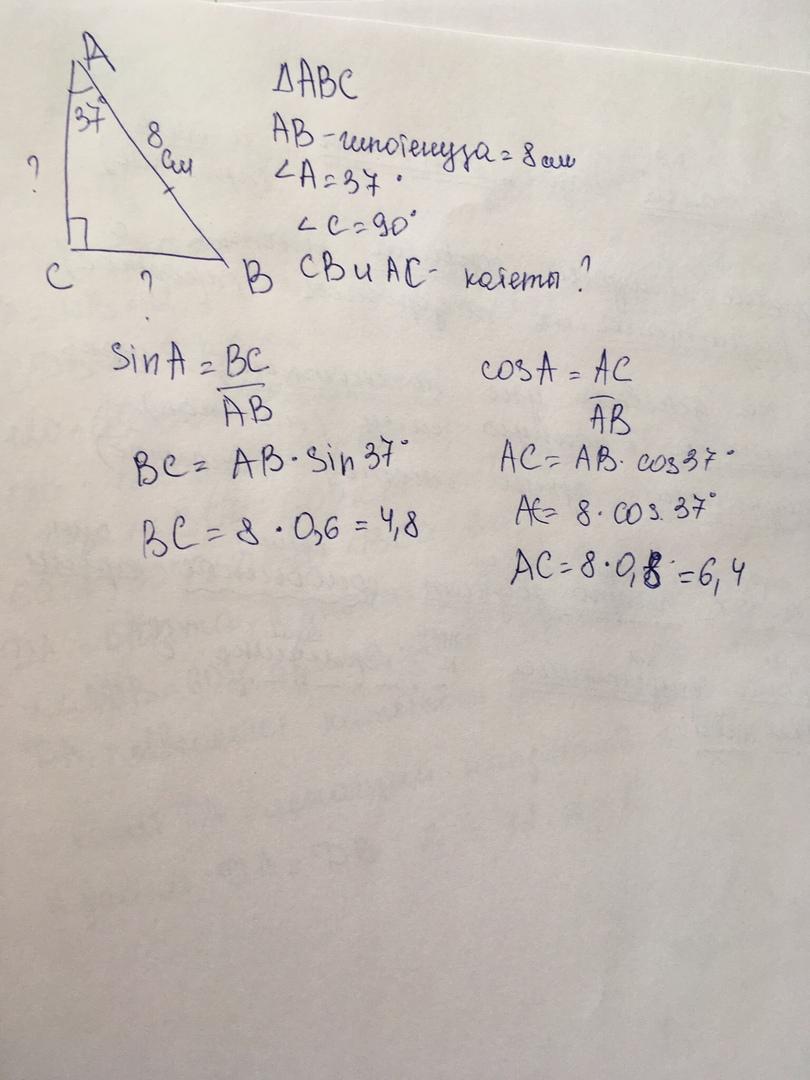 A
37°
8 см
?
C
?
B
ΔABC
AB - гипотенуза = 8 см
∠A = 37°
∠C = 90°
CB и AC - катеты ?
sin A = BC
AB
BC = AB · sin 37°
BC = 8 · 0,6 = 4,8
cos A = AC
AB
AC = AB · cos 37°
AC = 8 · cos 37°
AC = 8 · 0,8 = 6,4